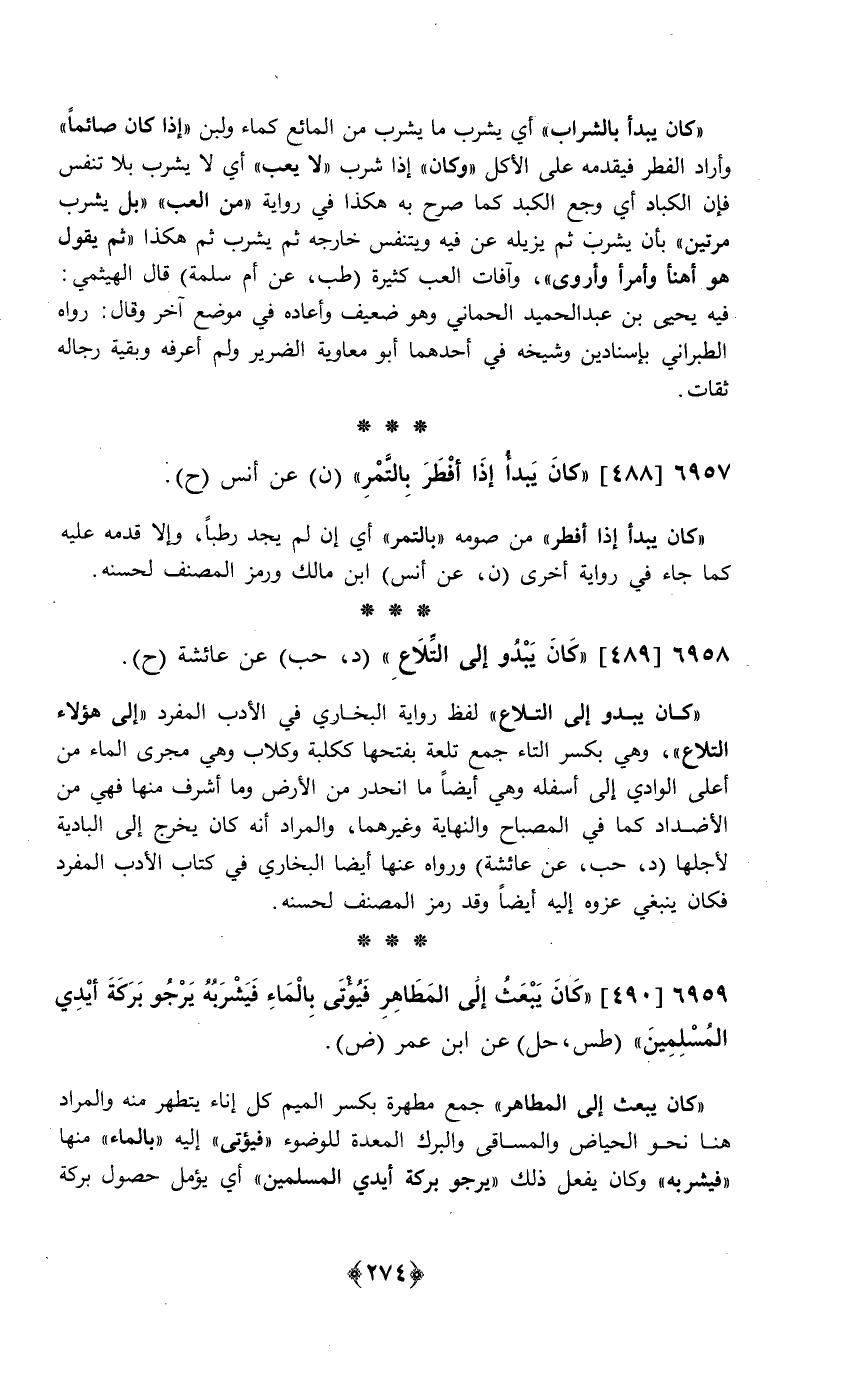 «كان يبدأ بالشراب» أي يشرب ما يشرب من المائع كماء ولبن «إذا كان صائماً»
وأراد الفطر فيقدمه على الأكل «وكان» إذا شرب «لا يعب» أي لا يشرب بلا تنفس
فإن الكباد أي وجع الكبد كما صرح به هكذا في رواية «من العب» «بل يشرب
مرتين» بأن يشرب ثم يزيله عن فيه ويتنفس خارجه ثم يشرب ثم هكذا «ثم يقول
هو أهنأ وأمرأ وأروى»، وآفات العب كثيرة (طب، عن أم سلمة) قال الهيثمي:
فيه يحيى بن عبدالحميد الحماني وهو ضعيف وأعاده في موضع آخر وقال: رواه
الطبراني بإسنادين وشيخه في أحدهما أبو معاوية الضرير ولم أعرفه وبقية رجاله
ثقات.
* * *
٦٩٥٧ [٤٨٨] «كانَ يَبدأُ إذَا أفْطَرَ بِالتَّمْرِ» (ن) عن أنس (ح).
«كان يبدأ إذا أفطر» من صومه «بالتمر» أي إن لم يجد رطباً، وإلا قدمه عليه
كما جاء في رواية أخرى (ن، عن أنس) ابن مالك ورمز المصنف لحسنه.
* * *
٦٩٥٨ [٤٨٩] «كَانَ يَبْدُو إلى التِّلَاعِ» (د، حب) عن عائشة (ح).
«كـان يبـدو إلى التـلاع» لفظ رواية البخـاري في الأدب المفرد «إلى هؤلاء
التلاع»، وهي بكسر التاء جمع تلعة بفتحها ككلبة وكلاب وهي مجرى الماء من
أعلى الوادي إلى أسفله وهي أيضاً ما انحدر من الأرض وما أشرف منها فهي من
الأضـداد كما في المصباح والنهاية وغيرهما، والمراد أنه كان يخرج إلى البادية
لأجلها (د، حب، عن عائشة) ورواه عنها أيضا البخاري في كتاب الأدب المفرد
فكان ينبغي عزوه إليه أيضاً وقد رمز المصنف لحسنه.
* * *
٦٩٥٩ [٤٩٠] «كَانَ يَبْعَثُ إلَى المَطَاهِرِ فَيُؤْتَى بِالْمَاءِ فَيَشْرَبُهُ يَرْجُو بَرَكَةَ أيْدِي
المُسْلِمِينَ» (طس، حل) عن ابن عمر (ض).
«كان يبعث إلى المطاهر» جمع مطهرة بكسر الميم كل إناء يتطهر منه والمراد
هنـا نحـو الحياض والمسـاقى والبرك المعدة للوضوء «فيؤتى» إليه «بالماء» منها
«فيشربه» وكان يفعل ذلك «يرجو بركة أيدي المسلمين» أي يؤمل حصول بركة
﴿٢٧٤﴾